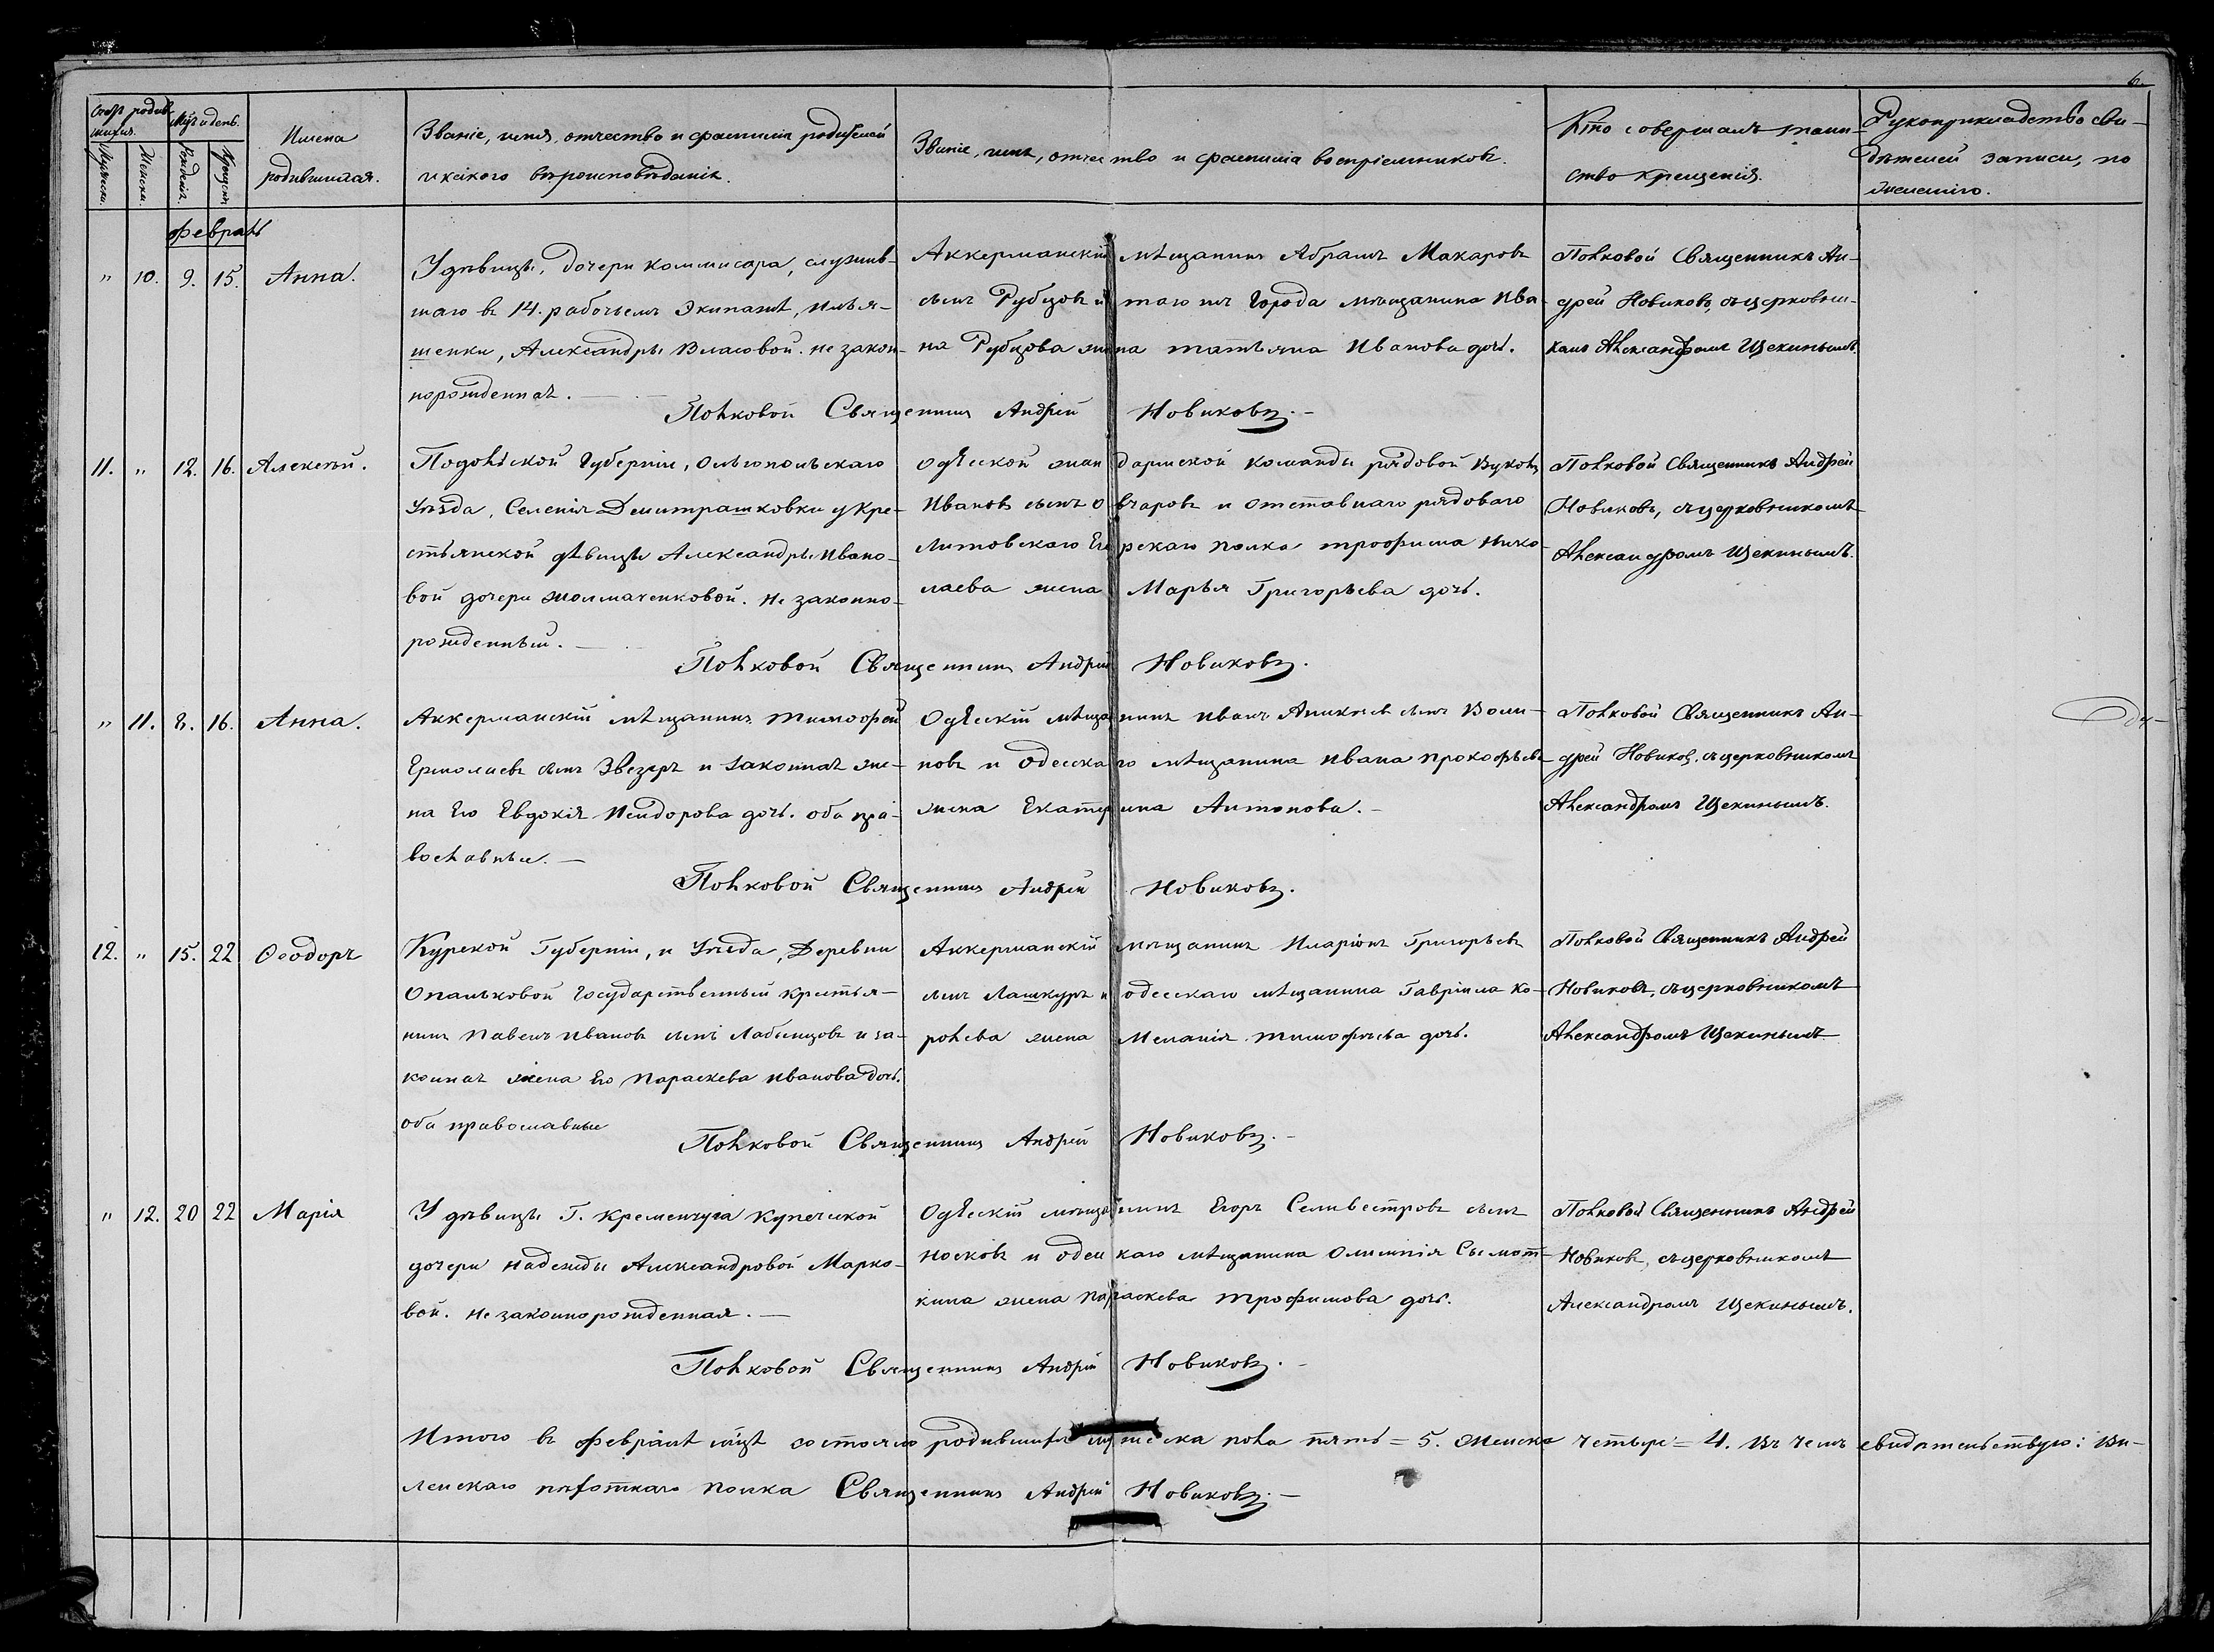 6.
Счетъ родив-
шихся.
Мужеска.
Женска.
Мѣс. и день.
Рожденія.
Крещенія.
Имена
родившихся.
Званіе, имя, отчество и фамилія родителей
и какого вѣроисповѣданія.
Званіе, имя, отчество и фамилія воспріемниковъ.
Кто совершалъ таин-
ство крещенія.
Рукоприкладство сви-
дѣтелей записи, по
желанію.
февраль
" 10. 9. 15. Анна.
У дѣвицы, дочери коммисара, служив-
шаго въ 14. рабочемъ Экипажѣ,
Александры Власовой. не закон-
норожденная.
Аккерманскій мѣщанинъ Абрамъ Макаровъ
сынъ Рубцовъ и того жъ города мѣщанина Ива-
на Рубцова жена татьяна Иванова дочь.
Полковой Священникъ Ан-
дрей Новиковъ, съ церковни-
комъ Александромъ Щекинымъ.
Полковой Священникъ Андрей Новиковъ.
11. " 12. 16. Алексѣй.
Подольской Губерніи, Ольгопольскаго
Уѣзда, Селенія Демитрашковки у кре-
стьянской дѣвицы Александры Ивано-
вой дочери Толмаченковой. Не законно-
рожденный.
Одесской жандармской команды рядовой Вуколъ
Ивановъ сынъ Овчаровъ и отставнаго рядоваго
Литовскаго Егерскаго полка трофима Нико-
лаева жена Марья Григорьева дочь.
Полковой Священникъ Андрей
Новиковъ, съ церковникомъ
Александромъ Щекинымъ.
Полковой Священникъ Андрей Новиковъ.
" 11. 8. 16. Анна.
Аккерманскій мѣщанинъ тимофей
Ермолаевъ сынъ Звезеръ и законная же-
на Его Евдокія Исидорова дочь. оба пра-
вославные.
Одесскій мѣщанинъ Иванъ Аникіевъ сынъ Воли-
новъ и Одесскаго мѣщанина Ивана Прокофьева
жена Екатерина Антонова.
Полковой Священникъ Ан-
дрей Новиковъ, съ церковникомъ
Александромъ Щекинымъ.
Полковой Священникъ Андрей Новиковъ.
12. " 15. 22 Ѳеодоръ
Курской Губерніи, и Уѣзда, Деревни
Опальковой государственный крестья-
нинъ Павелъ Ивановъ сынъ Лабынцовъ и за-
конная жена Его Параскева Иванова дочь.
оба православные
Аккерманскій мѣщанинъ Иларіонъ Григорьевъ
сынъ Лашкуръ и одесскаго мѣщанина Гавріила Ко-
ролева жена Меланія тимофѣева дочь.
Полковой Священникъ Андрей
Новиковъ, съ церковникомъ
Александромъ Щекинымъ
Полковой Священникъ Андрей Новиковъ.
" 12. 20 22 Марія
У дѣвицы Г. Кременчуга купеческой
дочери Надежды Александровой Марко-
вой. Не законнорожденная.
Одесскій мѣщанинъ Егоръ Селивестровъ сынъ
Носковъ и одескаго мѣщанина Олимпія
жена Параскева трофимова дочь.
Полковой Священникъ Андрей
Новиковъ, съ церковникомъ
Александромъ Щекинымъ.
Полковой Священникъ Андрей Новиковъ.
Итого въ февралѣ мѣсѣ состояло родившихся мужеска пола пять = 5. женска четыре = 4. Въ чемъ свидѣтельствую: Ви-
ленскаго пѣхотнаго полка Священникъ Андрей Новиковъ.